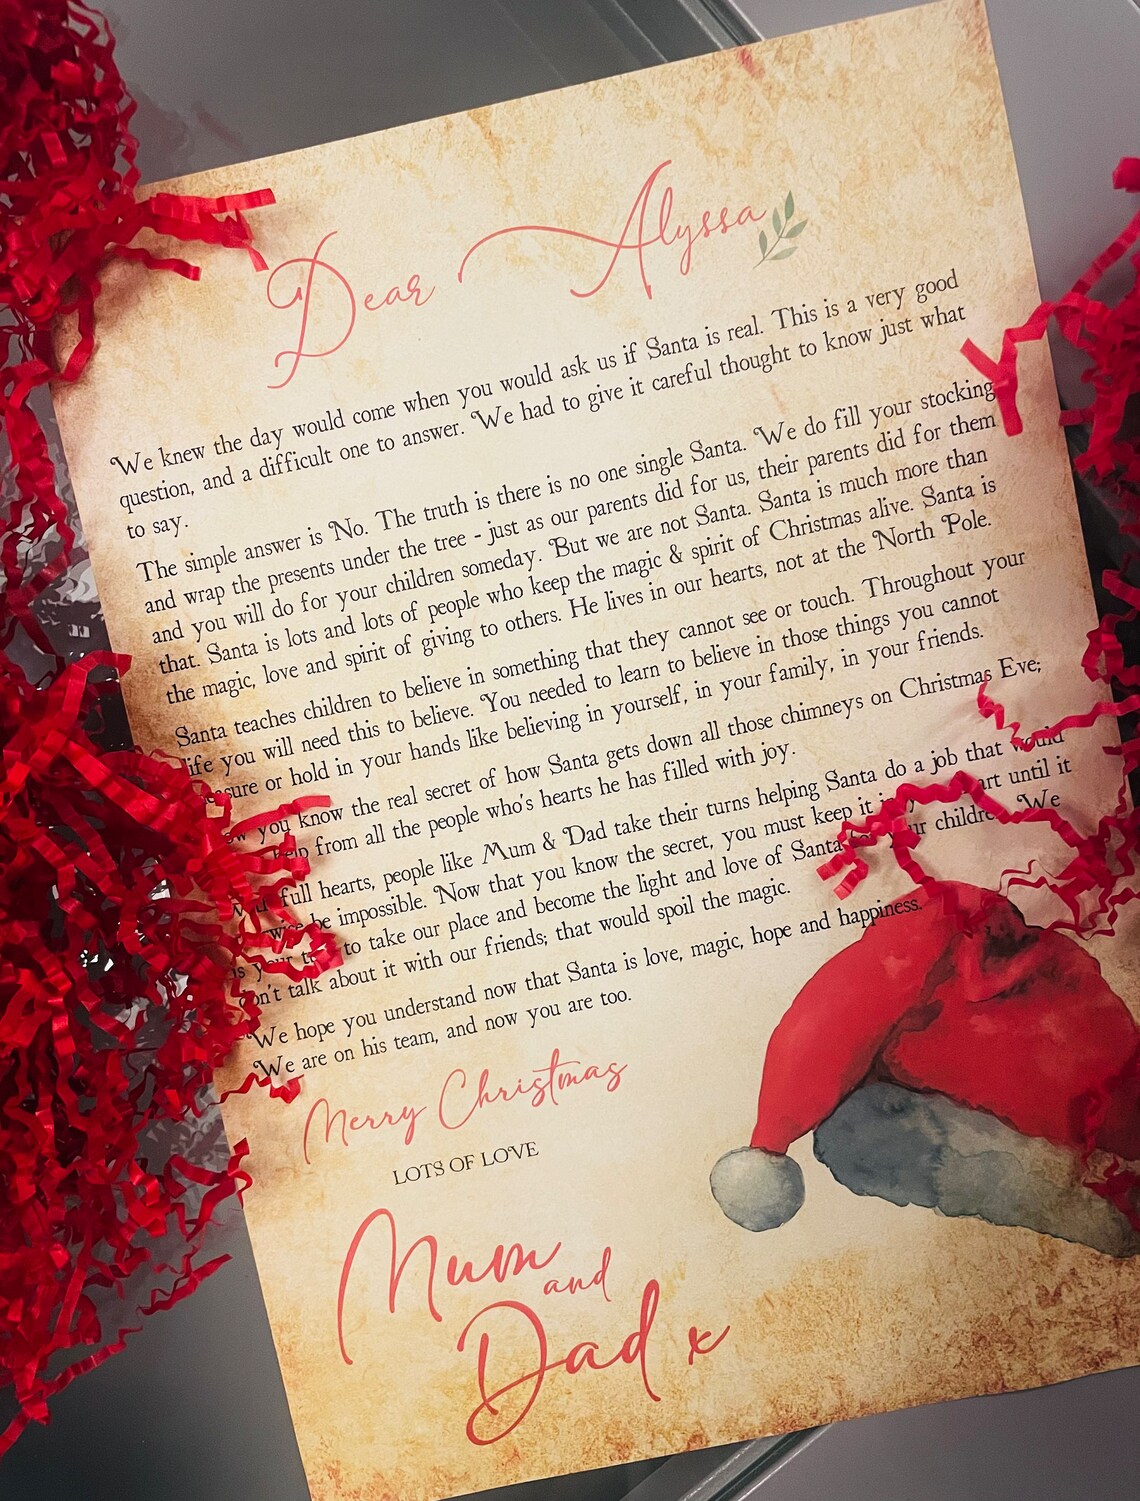 Dear Alyssa
We knew the day would come when you would ask us if Santa is real. This is a very good
question, and a difficult one to answer. We had to give it careful thought to know just what
to say.
The simple answer is No. The truth is there is no one single Santa. We do fill your stocking
and wrap the presents under the tree - just as our parents did for us, their parents did for them
and you will do for your children someday. But we are not Santa. Santa is much more than
that. Santa is lots and lots of people who keep the magic & spirit of Christmas alive. Santa is
the magic, love and spirit of giving to others. He lives in our hearts, not at the North Pole.
Santa teaches children to believe in something that they cannot see or touch. Throughout your
life you will need this to believe. You needed to learn to believe in those things you cannot
measure or hold in your hands like believing in yourself, in your family, in your friends.
you know the real secret of how Santa gets down all those chimneys on Christmas Eve;
help from all the people who's hearts he has filled with joy.
With full hearts, people like Mum & Dad take their turns helping Santa do a job that would
be impossible. Now that you know the secret, you must keep it in until it
is your to take our place and become the light and love of Santa your children. We
don't talk about it with our friends; that would spoil the magic.
We hope you understand now that Santa is love, magic, hope and happiness.
We are on his team, and now you are too.
Merry Christmas
LOTS OF LOVE
Mum
and
Dad x